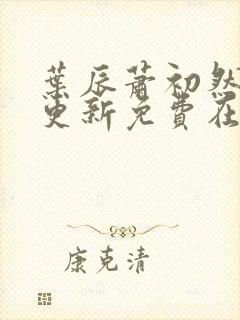 葉辰蕭初然
更新免費在
康克清